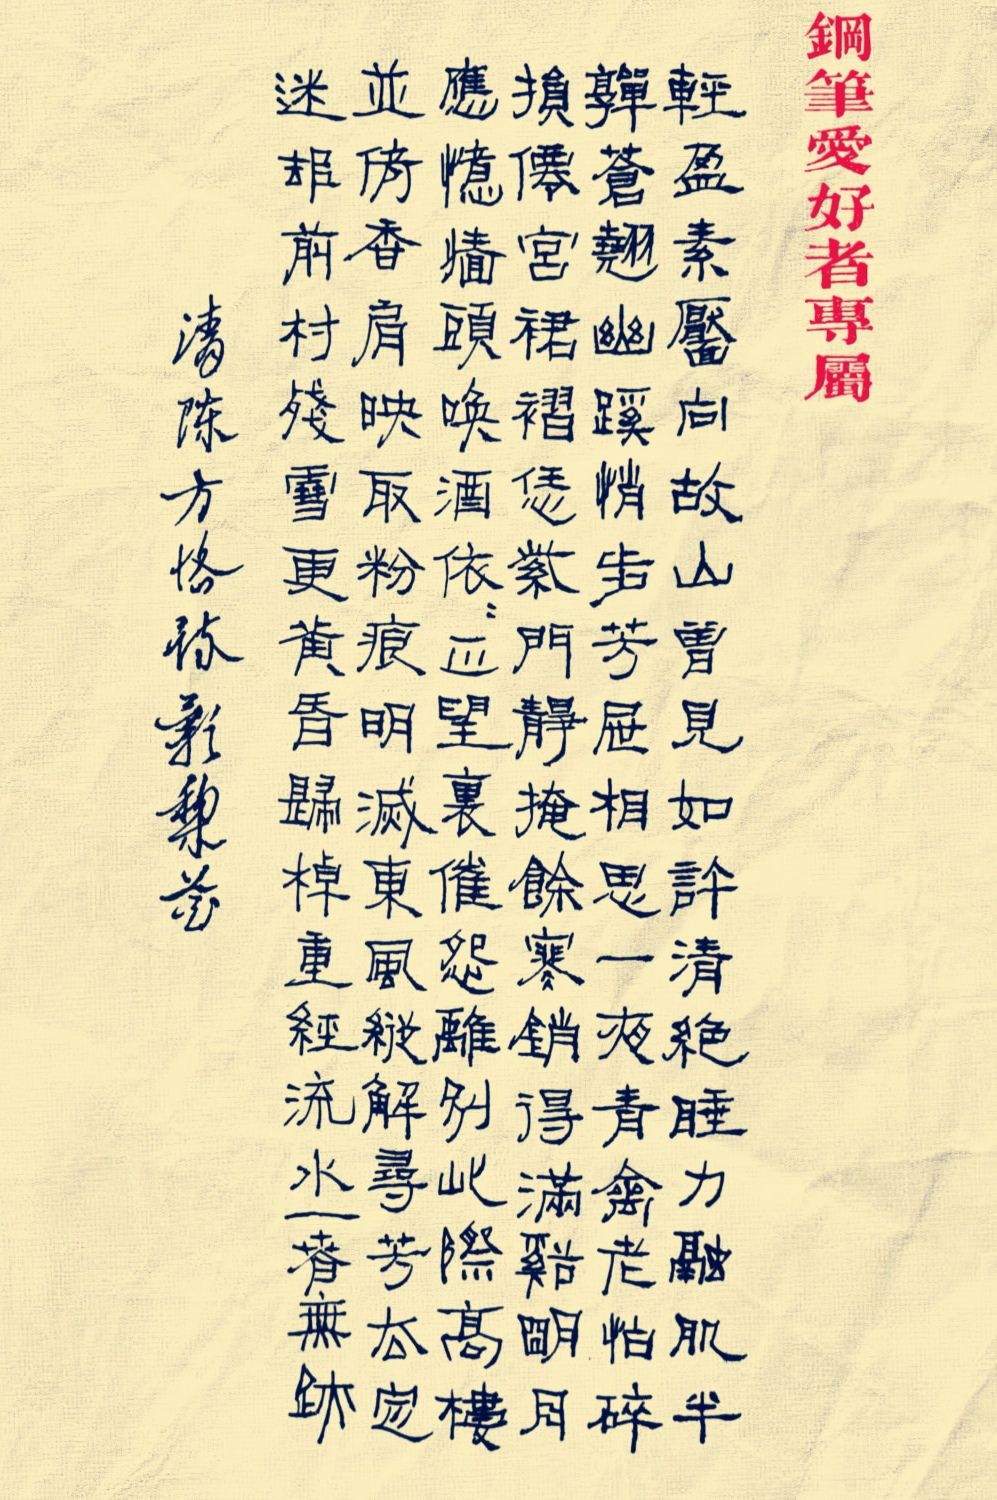 鋼筆愛好者專屬
輕盈素靨向故山曾見如許清絕睡力融肌半
嚲蒼翹幽蹊悄步芳相思一夜青禽老怕碎
損僊宮裙褶恁門靜掩餘寒銷得滿谿朙月
應憶牆頭喚酒依〻正望裏催怨離別此際高樓
並倚香肩映取粉痕明滅東風縱解尋芳去定
迷卻前村殘雪更黃昏歸棹重經流水一春無跡
清陈方恪疎影梨花